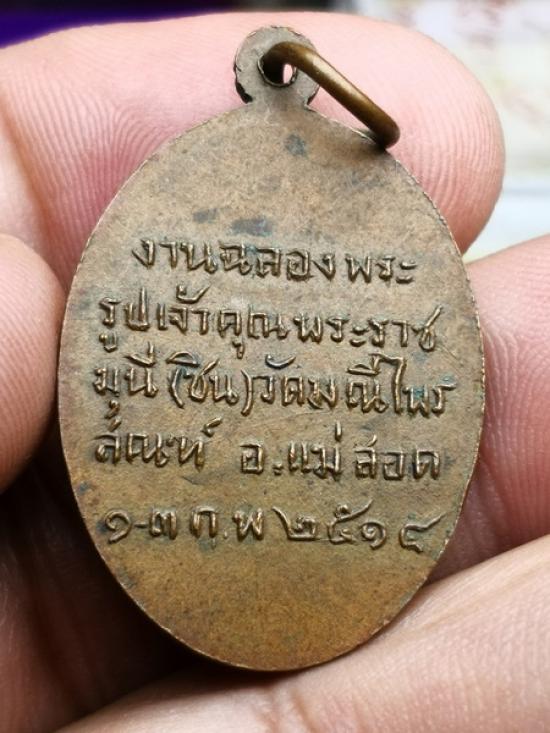 งานฉลองพระ
รูปเจ้าคุณพระราช
มุนี (ชิน) วัดมณีไพร
สณฑ์ อ.แม่สอด
๑-๓ ก.พ ๒๕๑๔